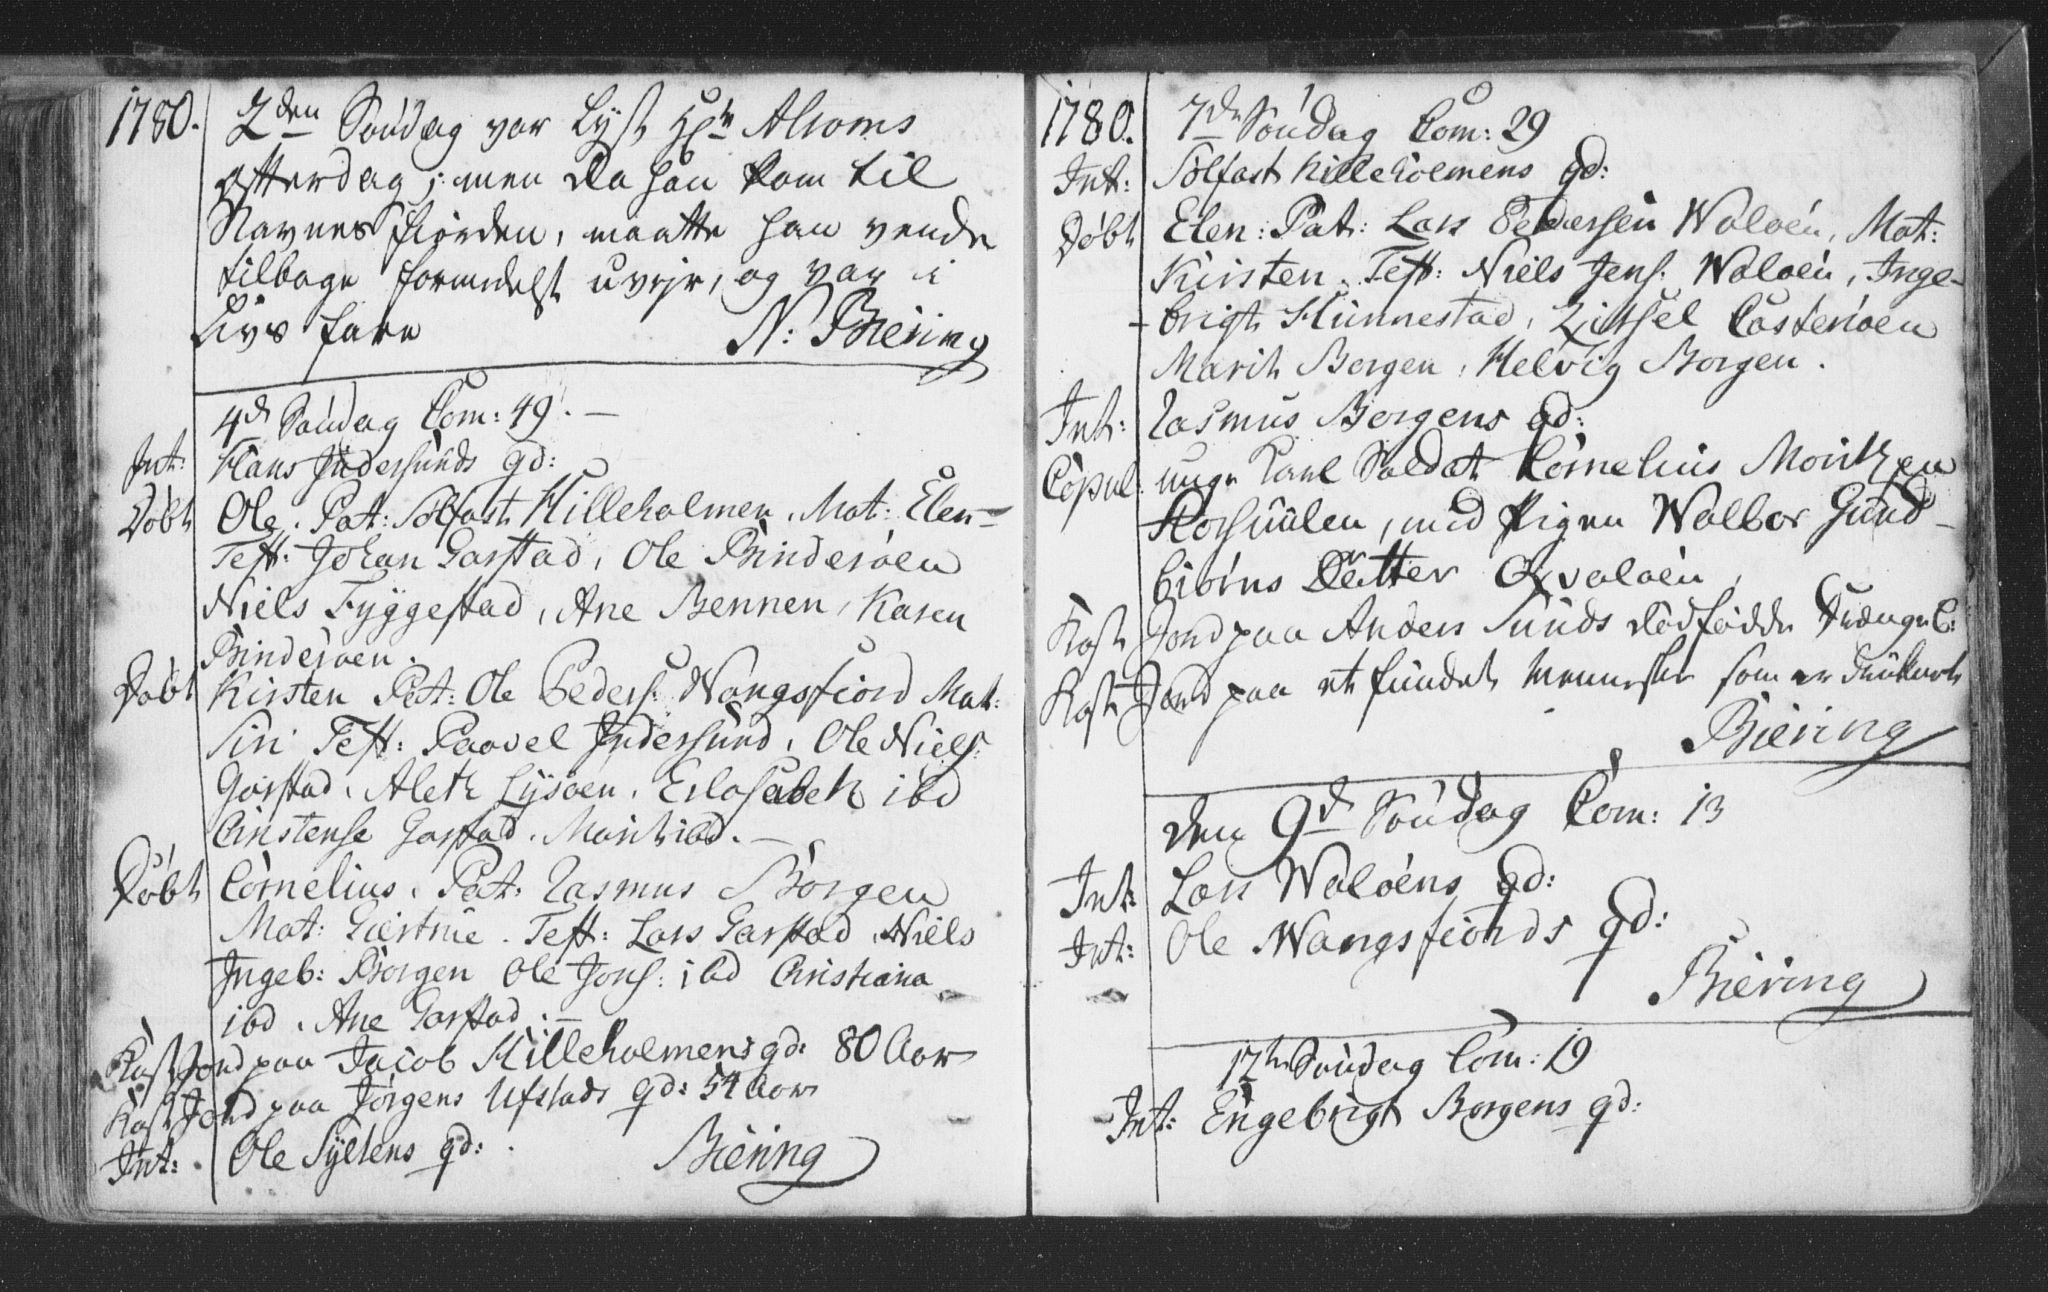 1780. 2den Søndag var Lyst Hr: Alsoms
efterdag; men da han kom til
Navnes fiorden, maatte han vende
tilbage formedelst uvejr, og var i
Livs fare N: Biering
4de Søndag Com: 49. —
Int: Hans Indersunds qd:
Døbt Ole. Pat: Solfast Killeholmen. Mat: Elen –
Test: Johan Garstad, Ole Binderøen
Niels Fyggestad, Ane Bennen, Karen
Binderøen.
Døbt Kirsten Pat: Ole Peders: Wangsfiord Mat:
Siri Test: Paavel Indersund, Ole Niels:
Garstad, Aleth Lysøen, Elisabeth ibd
Christense Garstad. Marit ibd. —
Døbt Cornelius. Pat: Rasmus Borgen
Mat: Giertrue. Test: Lars Garstad, Niels
Ingeb: Borgen Ole Jons: ibd Christiana
ibd. Ane Garstad. —
Kast Jord paa Jacob Killeholmens qd: 80 Aar
Kast Jord paa Jørgens Ufstads qd: 54 Aar
Int: Ole Syltens qd: Biering
1780. 7de Søndag Com: 29
Int: Solfast Killeholmens qd:
Døbt Elen: Pat: Lars Pedersen Waløen, Mat:
Kirsten. Test: Niels Jens: Waløen, Inge-
brigt Hunnestad, Zitsel Casterøen
Marit Borgen, Helvig Borgen.
Int: Rasmus Borgens qd:
Copul. unge Karl Soldat Cornelius Moritzen
Horsuulen, med Pigen Walbor Gund-
biørns Datter Qvaløen,
Kast Jord paa Anders Sunds dødfødde Drænge B:
Kast Jord paa et fundet menneske som er druknet
Biering
den 9de Søndag Com: 13
Int: Lars Waløens qd:
Int: Ole Wangsfiords qd:
Biering
12te Søndag Com: 19
Int: Engebrigt Borgens qd: